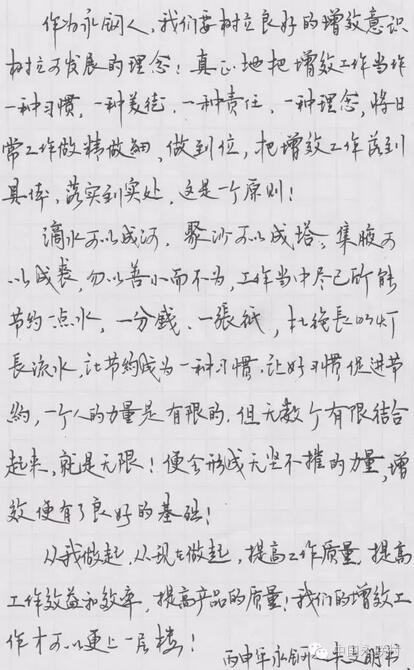 作为永钢人,我们要树立良好的增效意识
树立可发展的理念!真正地把增效工作当作
一种习惯,一种美德,一种责任,一种理念,将日
常工作做精做細,做到位,把增效工作落到
具体,落实到实处,这是一个原则!
滴水可以成河,聚沙可以成塔,集腋可
以成裘,勿以善小而不为,工作当中尽己所能
节约一点水,一分錢,一張紙,杜絶長明灯
長流水,让节約成为一种习慣,让好习慣促进节
約,一个人的力量是有限的,但无数个有限结合
起来,就是无限!便会形成无坚不摧的力量,增
效便有了良好的基础!
从我做起,从现在做起,提高工作质量,提高
工作效益和效率,提高产品的质量!我们的增效工
作才可以更上一层楼!
丙申年永钢